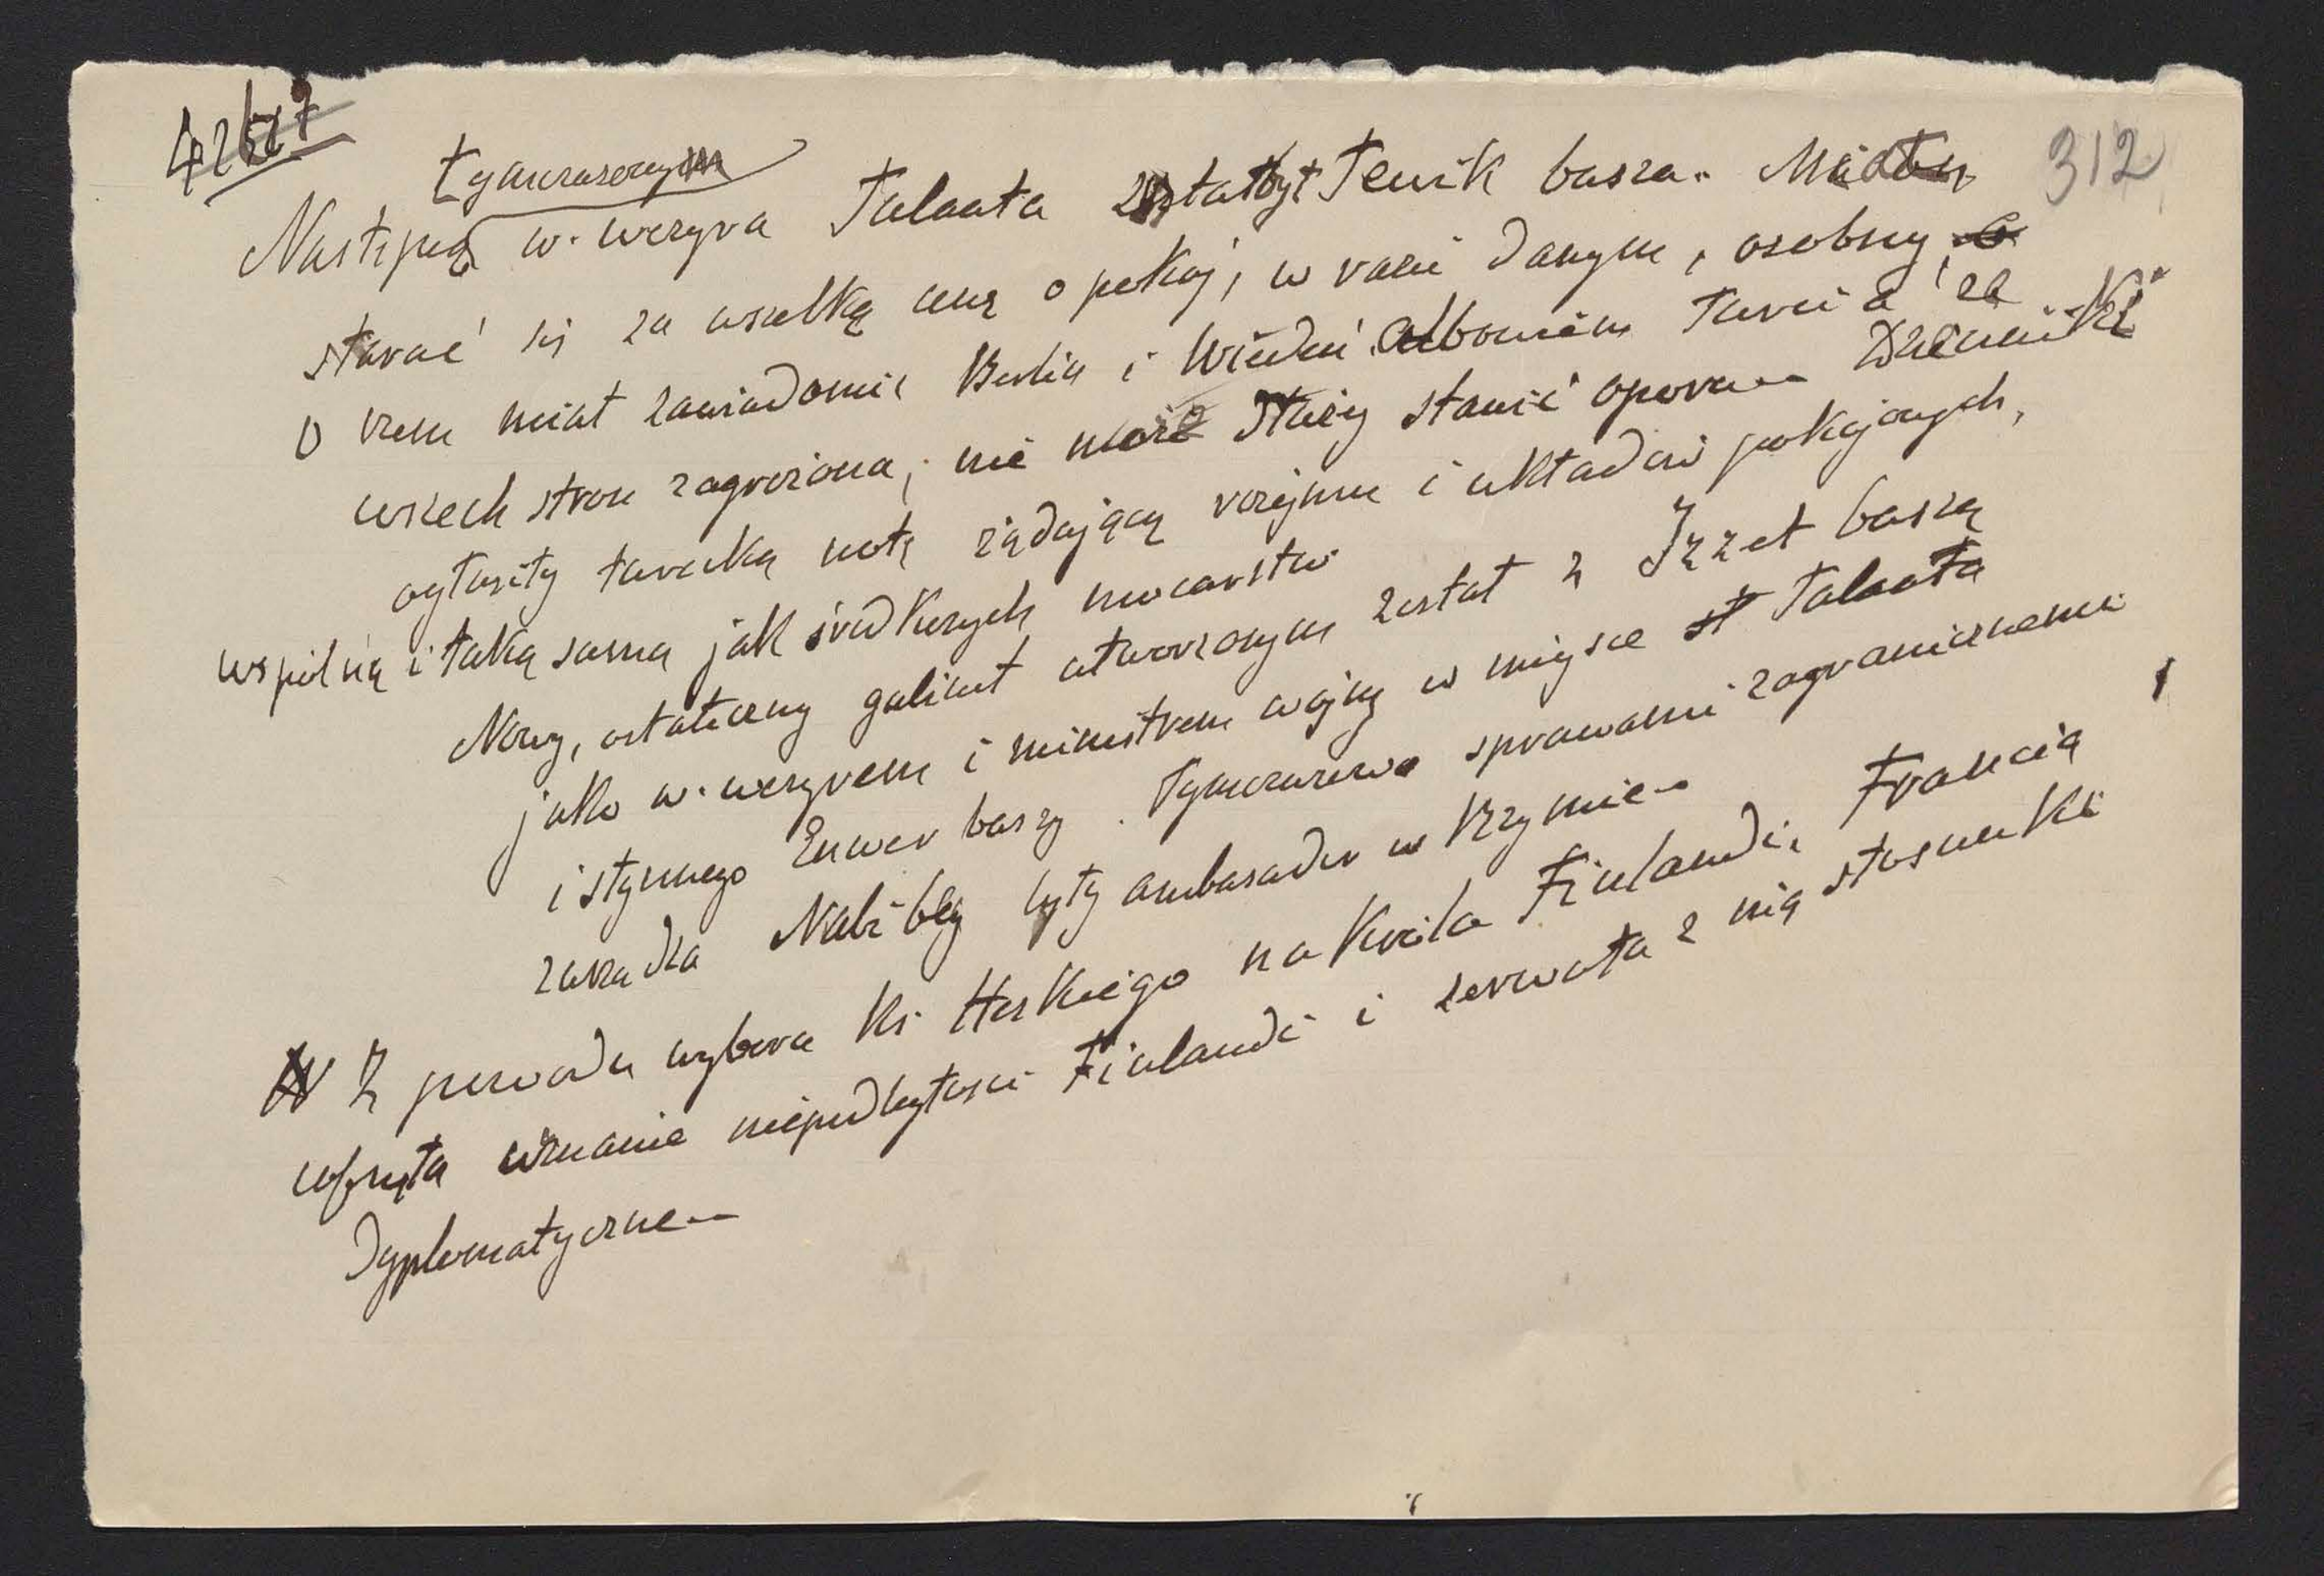 312
tymczasowym
Następcą w. wezyra Talaata był Tewik basza. Miał
starać się za wszelką cenę o pokój, w razie danym, osobny,
o czem miał zawiadomić Berlin i Wiedeń. Albowiem Turcia ze
wszech stron zagrożona, nie może dłużej stawić oporu. Dzienniki
ogłosiły turecką notę żądającą rozejmu i układów pokojowych,
wspólną i taką samą jak środkowych mocarstw
Nowy, ostateczny gabinet utworzonym został z Izzet baszą
jako w. wezyrem i ministrem wojny w miejsce Talaata
i słynnego Enwer baszy. Tymczasowo sprawami zagranicznemi
zarządza Nabi bey były ambasador w Rzymie.
Z powodu wyboru Ks. Heskiego na Króla Finlandi, Francia
cofnęła uznanie niepodległości Finlandi i zerwała z nią stosunki
dyplomatyczne.